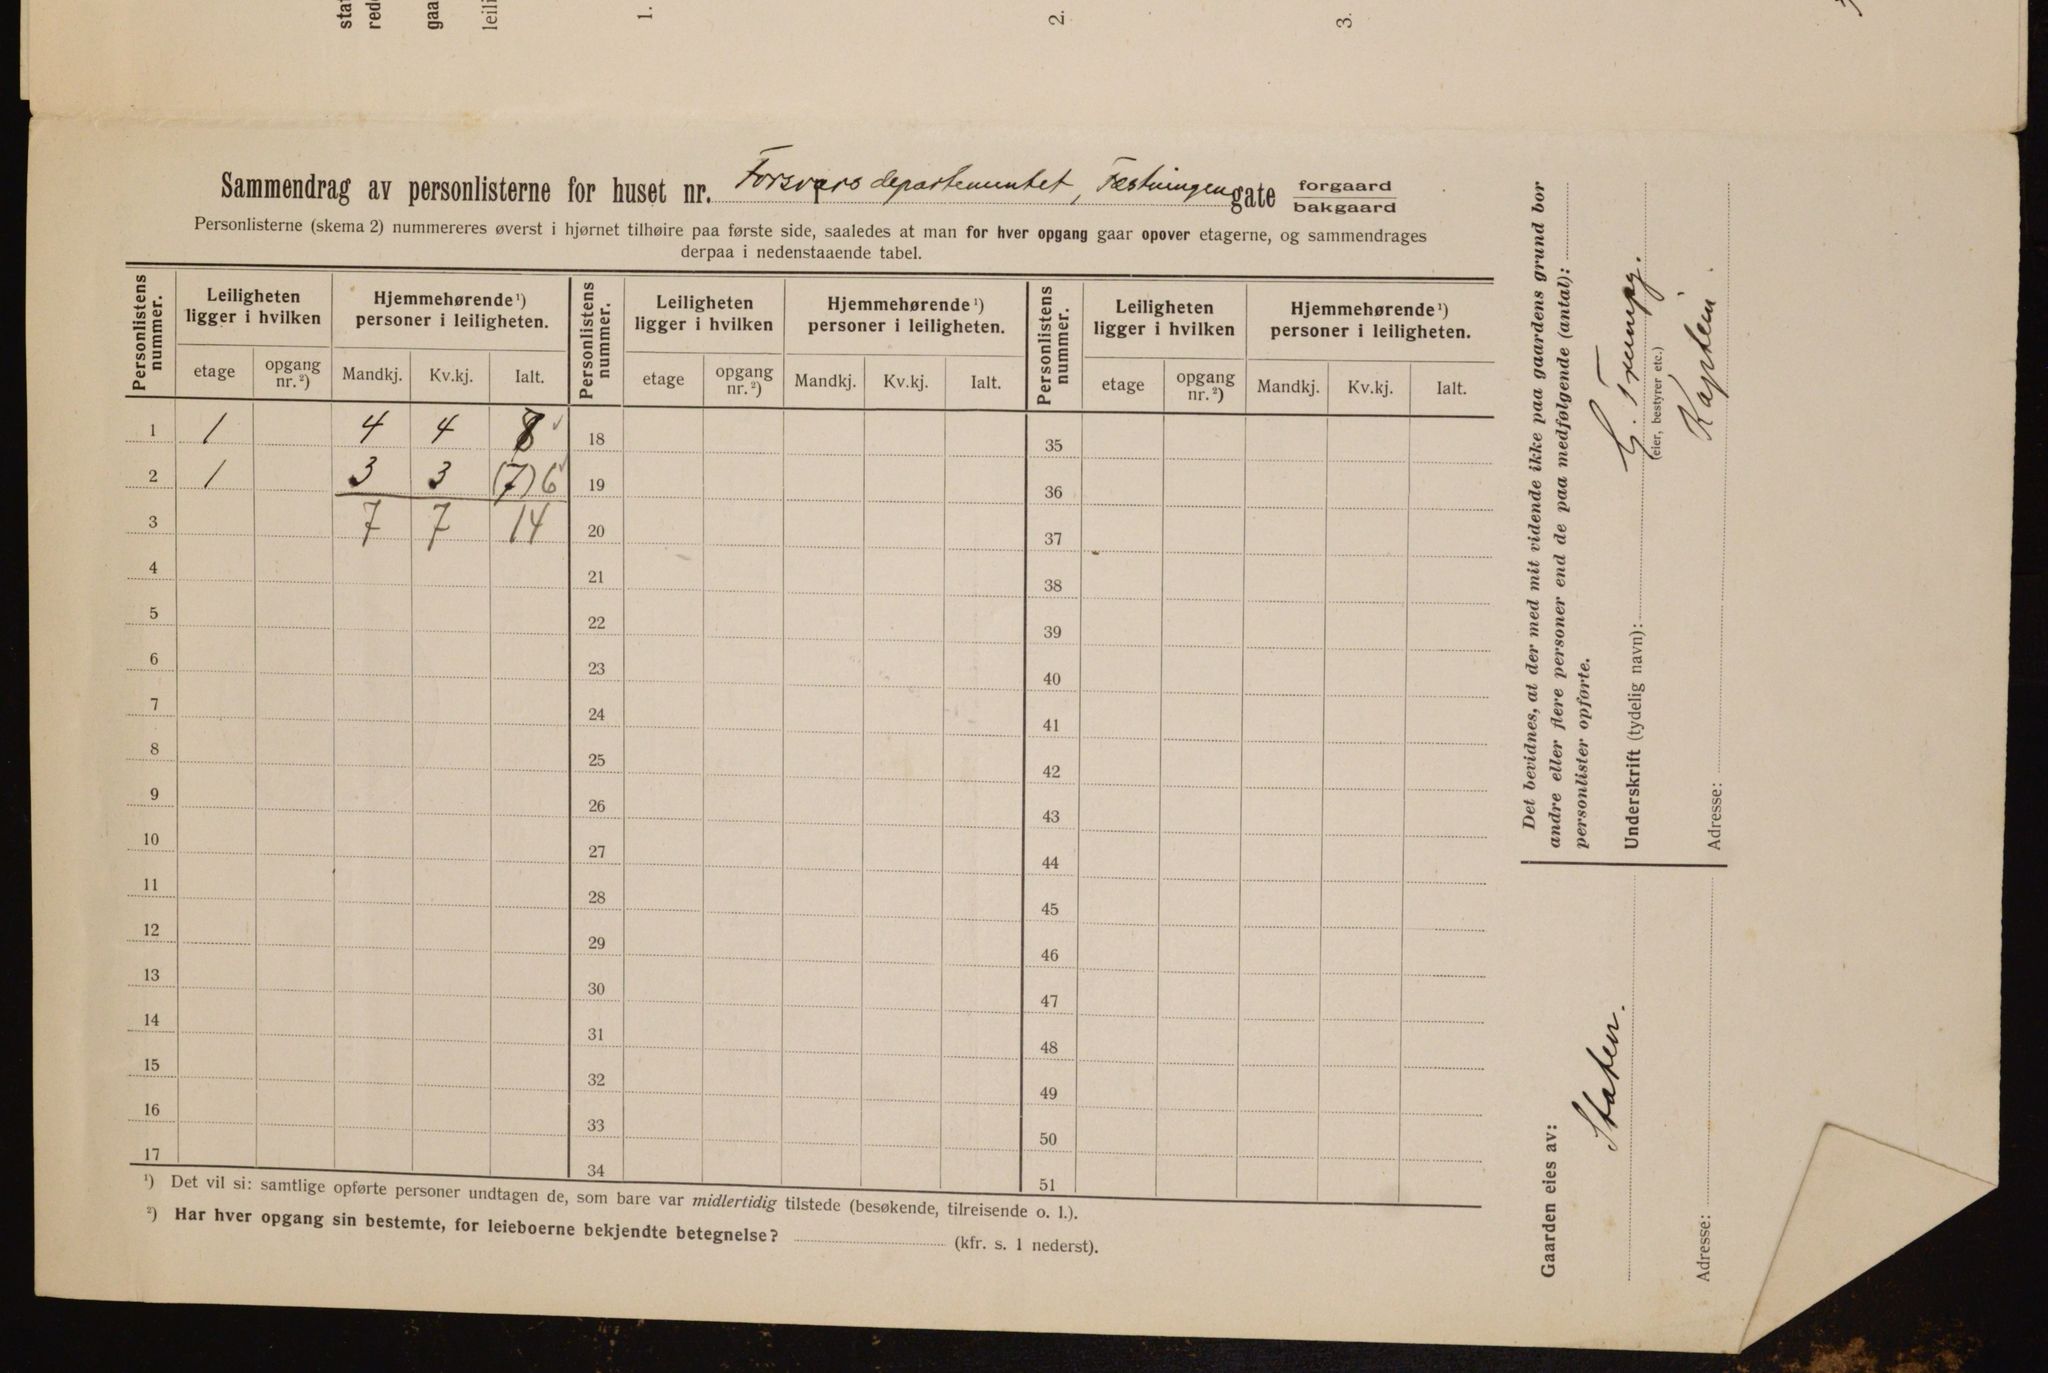 1.
2.
3.
Sammendrag av personlisterne for huset nr. Forsvarsdepartementet, Fæstningen gate forgaard bakgaard
Personlisterne (skema 2) nummereres øverst i hjørnet tilhøire paa første side, saaledes at man for hver opgang gaar opover etagerne, og sammendrages
derpaa i nedenstaaende tabel.
Personlistens nummer. Leiligheten ligger i hvilken Hjemmehørende ¹) personer i leiligheten. Personlistens nummer. Leiligheten ligger i hvilken Hjemmehørende ¹) personer i leiligheten. Personlistens nummer. Leiligheten ligger i hvilken Hjemmehørende ¹) personer i leiligheten.
etage opgang nr. ²) Mandkj. Kv.kj. Ialt. etage opgang nr. ²) Mandkj. Kv.kj. Ialt. etage opgang nr. ²) Mandkj. Kv.kj. Ialt.
1 1 4 4 8 18 35
2 1 3 3 (7) 6 19 36
3 7 7 14 20 37
4 21 38
5 22 39
6 23 40
7 24 41
8 25 42
9 26 43
10 27 44
11 28 45
12 29 46
13 30 47
14 31 48
15 32 49
16 33 50
17 34 51
¹) Det vil si: samtlige opførte personer undtagen de, som bare var midlertidig tilstede (besøkende, tilreisende o. l.).
²) Har hver opgang sin bestemte, for leieboerne bekjendte betegnelse? (kfr. s. 1 nederst).
Det bevidnes, at der med mit vidende ikke paa gaardens grund bor
andre eller flere personer end de paa medfølgende (antal):
personlister opførte.
Underskrift (tydelig navn):
(eier, bestyrer etc.)
Kaptein.
Adresse:
Gaarden eies av:
Staten.
Adresse: